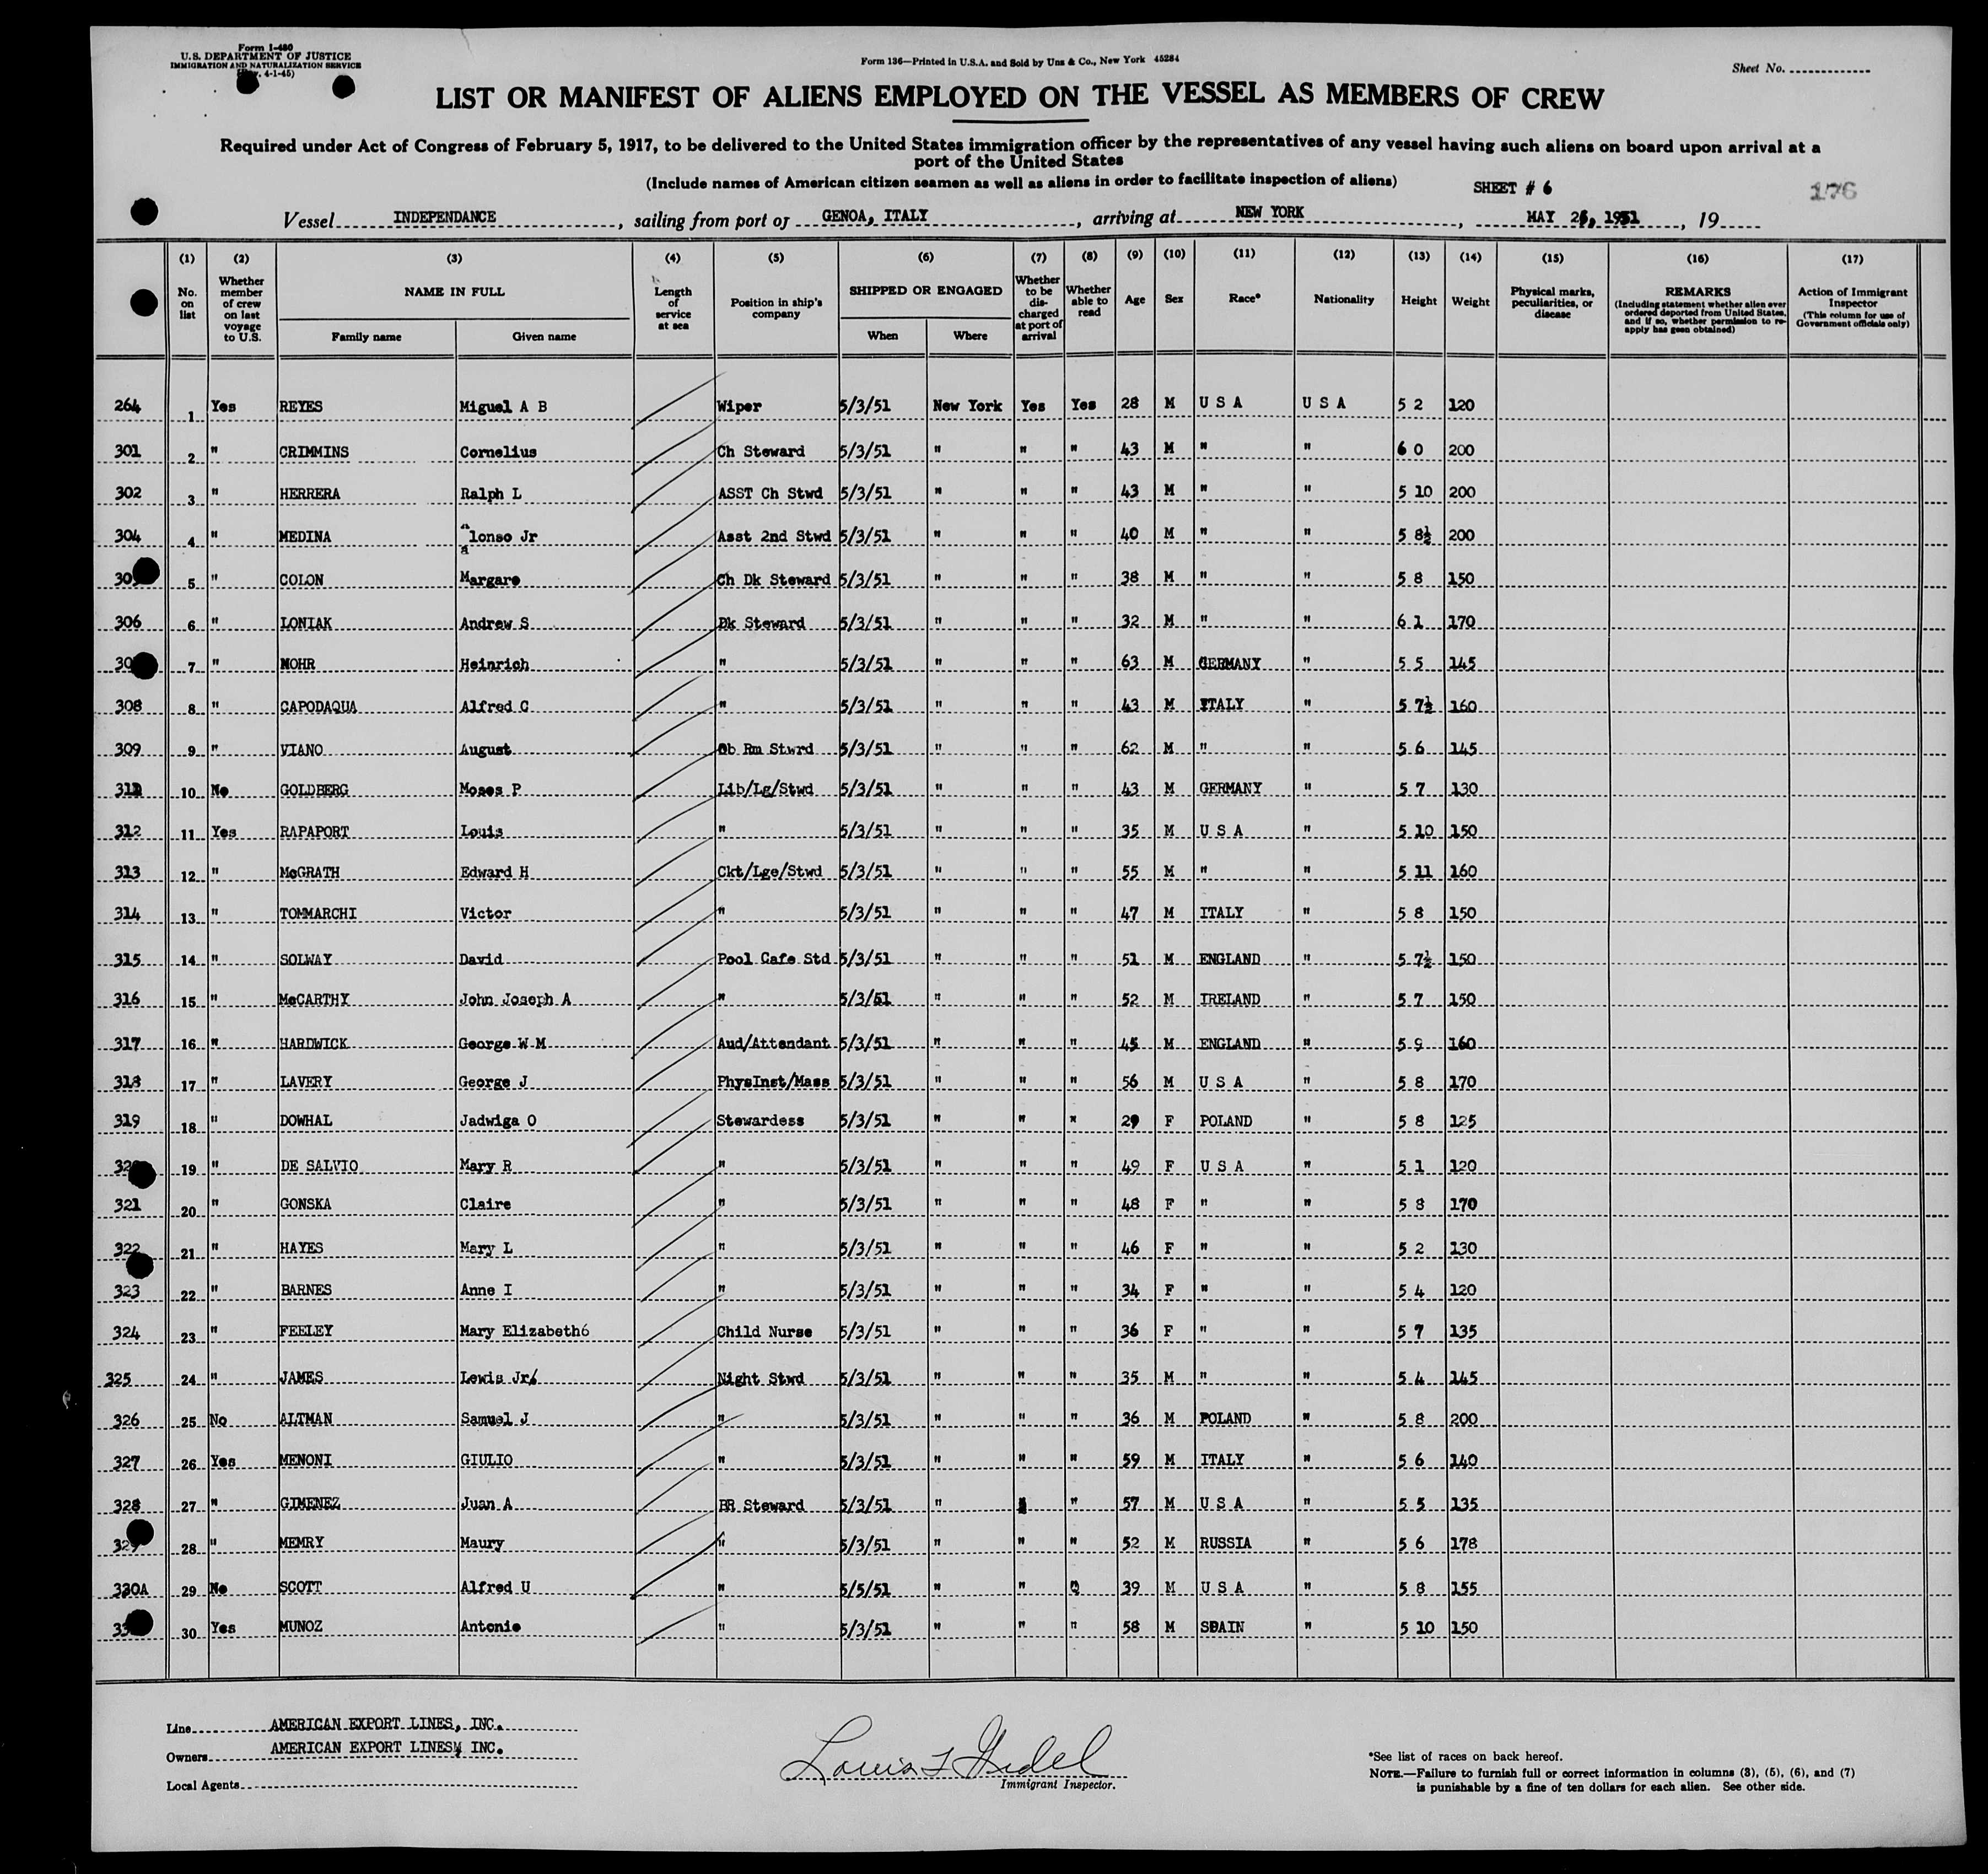 Form I-480
U.S. DEPARTMENT OF JUSTICE
IMMIGRATION AND NATURALIZATION SERVICE
4-1-45)
Form 136—Printed in U.S.A. and Sold by Unz & Co., New York 45284
Sheet No.
LIST OR MANIFEST OF ALIENS EMPLOYED ON THE VESSEL AS MEMBERS OF CREW
Required under Act of Congress of February 5, 1917, to be delivered to the United States immigration officer by the representatives of any vessel having such aliens on board upon arrival at a
port of the United States
(Include names of American citizen seamen as well as aliens in order to facilitate inspection of aliens)
SHEET # 6
176
Vessel INDEPENDANCE, sailing from port of GENOA, ITALY, arriving at NEW YORK, MAY 1951, 19
(1) No. on list
(2) Whether member of crew on last voyage to U.S.
(3) NAME IN FULL Family name Given name
(4) Length of service at sea
(5) Position in ship's company
(6) SHIPPED OR ENGAGED When Where
(7) Whether to be discharged at port of arrival
(8) Whether able to read
(9) Age
(10) Sex
(11) Race*
(12) Nationality
(13) Height
(14) Weight
(15) Physical marks, peculiarities, or disease
(16) REMARKS (Including statement whether alien ever ordered deported from United States, and if so, whether permission to re-apply has been obtained)
(17) Action of Immigrant Inspector (This column for use of Government officials only)
264 1 Yes REYES Miguel A B Wiper 5/3/51 New York Yes Yes 28 M U S A U S A 5 2 120
301 2 " CRIMMINS Cornelius Ch Steward 5/3/51 " " " 43 M " " 6 0 200
302 3 " HERRERA Ralph L ASST Ch Stwd 5/3/51 " " " 43 M " " 5 10 200
304 4 " MEDINA Alonso Jr Asst 2nd Stwd 5/3/51 " " " 40 M " " 5 8½ 200
5 " COLON Margaro Ch Dk Steward 5/3/51 " " " 38 M " " 5 8 150
306 6 " LONIAK Andrew S Dk Steward 5/3/51 " " " 32 M " " 6 1 170
7 " MOHR Heinrich " 5/3/51 " " " 63 M GERMANY " 5 5 145
308 8 " CAPODAQUA Alfred C " 5/3/51 " " " 43 M ITALY " 5 7½ 160
309 9 " VIANO August Ob Rm Stwrd 5/3/51 " " " 62 M " " 5 6 145
10 No GOLDBERG Moses P Lib/Lg/Stwd 5/3/51 " " " 43 M GERMANY " 5 7 130
312 11 Yes RAPAPORT Louis " 5/3/51 " " " 35 M U S A " 5 10 150
313 12 " McGRATH Edward H Ckt/Lge/Stwd 5/3/51 " " " 55 M " " 5 11 160
314 13 " TOMMARCHI Victor " 5/3/51 " " " 47 M ITALY " 5 8 150
315 14 " SOLWAY David Pool Cafe Std 5/3/51 " " " 51 M ENGLAND " 5 7½ 150
316 15 " McCARTHY John Joseph A " 5/3/51 " " " 52 M IRELAND " 5 7 150
317 16 " HARDWICK George W M Aud/Attendant 5/3/51 " " " 45 M ENGLAND " 5 9 160
318 17 " LAVERY George J PhysInst/Mass 5/3/51 " " " 56 M U S A " 5 8 170
319 18 " DOWHAL Jadwiga O Stewardess 5/3/51 " " " 29 F POLAND " 5 8 125
19 " DE SALVIO Mary R " 5/3/51 " " " 49 F U S A " 5 1 120
321 20 " GONSKA Claire " 5/3/51 " " " 48 F " " 5 8 170
322 21 " HAYES Mary L " 5/3/51 " " " 46 F " " 5 2 130
323 22 " BARNES Anne I " 5/3/51 " " " 34 F " " 5 4 120
324 23 " FEELEY Mary Elizabeth6 Child Nurse 5/3/51 " " " 36 F " " 5 7 135
325 24 " JAMES Lewis Jr Night Stwd 5/3/51 " " " 35 M " " 5 4 145
326 25 No ALTMAN Samuel J " 5/3/51 " " " 36 M POLAND " 5 8 200
327 26 Yes MENONI GIULIO " 5/3/51 " " " 59 M ITALY " 5 6 140
328 27 " GIMENEZ Juan A BR Steward 5/3/51 " " 57 M U S A " 5 5 135
329 28 " MEMRY Maury " 5/3/51 " " " 52 M RUSSIA " 5 6 178
330A 29 No SCOTT Alfred U " 5/5/51 " " 39 M U S A " 5 8 155
30 Yes MUNOZ Antonio " 5/3/51 " " " 58 M SPAIN " 5 10 150
Line AMERICAN EXPORT LINES, INC.
Owners AMERICAN EXPORT LINES, INC.
Local Agents
Immigrant Inspector.
*See list of races on back hereof.
NOTE.—Failure to furnish full or correct information in columns (3), (5), (6), and (7)
is punishable by a fine of ten dollars for each alien. See other side.